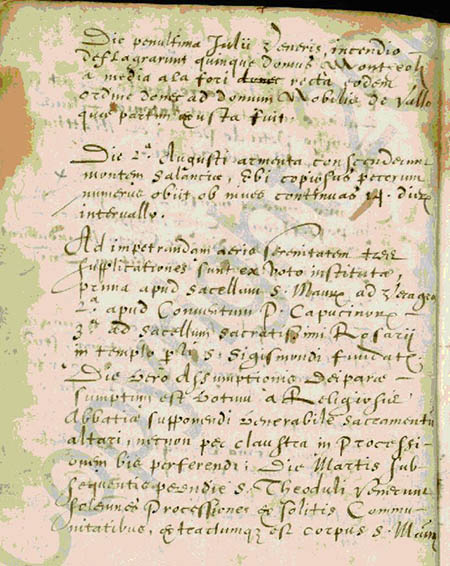 Die penultima Julii Veneris, incendio
deflagrarunt quinque domus Montheoli
a media ala fori donec recta eodem
ordine donec ad domum Nobilis de Vallo
quæ partim exusta fuit.
Die 2.ª Augusti armenta conscenderunt
montem Salanciæ, Ubi copiosus pecorum
numerus obiit ob nives continuas 14. dierum
intervallo.
Ad impetrandam aeris serenitatem tres
supplicationes sunt ex voto institutæ,
prima apud sacellum S. Maur. ad
2.ª apud Conventum P. Capucinorum
3.ª ad sacellum sacratissimi Rosarii
in templo S. Sigismondi
Die vero Assumptionis Deiparæ
sumptum est votum a Religiosis
Abbatiæ supponendi venerabile sacramentum
altari, necnon per claustra in Processi-
onem bis perferendi. Die Martis sub-
sequente S. Theoduli venerunt
solemnes Processiones ex solitis Commu-
nitatibus, extractumque est corpus S. Maur.